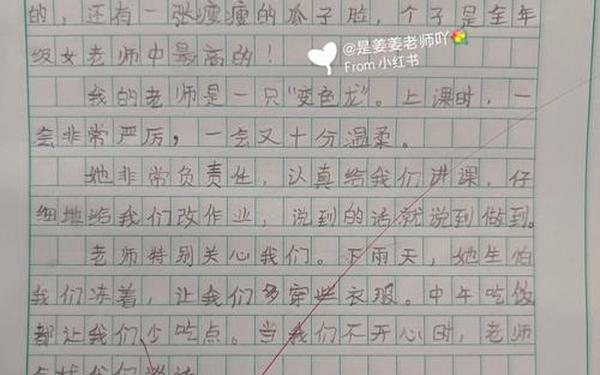 的，还有一张瘦瘦的瓜子脸，个子是全年
级女老师中最高的！
@是姜姜老师吖
From 小红书
我的老师是一只"变色龙"。上课时，一
会非常严厉，一会又十分温柔。
她非常负责任，认真给我们讲课，仔
细地给我们改作业，说到的话就说到做到。
老师特别关心我们。下雨天，她生怕
我们冻着，让我们多穿些衣服。中午吃饭
都让我们少吃点。当我们不开心时，老师
我们